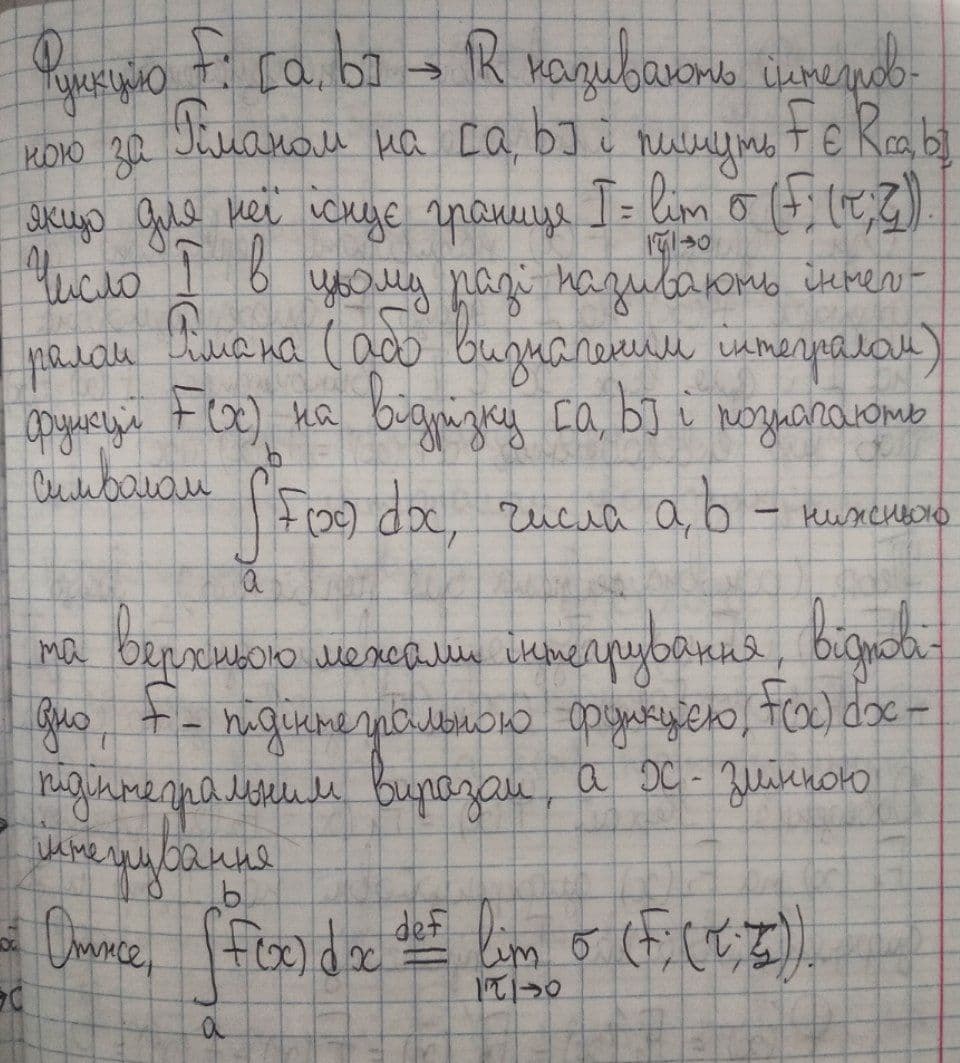 Функцію f: [a, b] → ℝ називають інтегров-
ною за Ріманом на [a, b] і пишуть f ∈ R[a, b],
якщо для неї існує границя I = lim σ (f; (τ; ξ)).
|τ|→0
Число I в цьому разі називають інтег-
ралом Рімана (або визначеним інтегралом)
функції f(x) на відрізку [a, b] і позначають
символом ∫ₐᵇ f(x) dx, числа a, b – нижньою
та верхньою межами інтегрування, відпові-
дно, f – підінтегральною функцією, f(x) dx –
підінтегральним виразом, а x - змінною
інтегрування
Отже, ∫ₐᵇ f(x) dx ≝ lim σ (f; (τ; ξ)).
|τ|→0